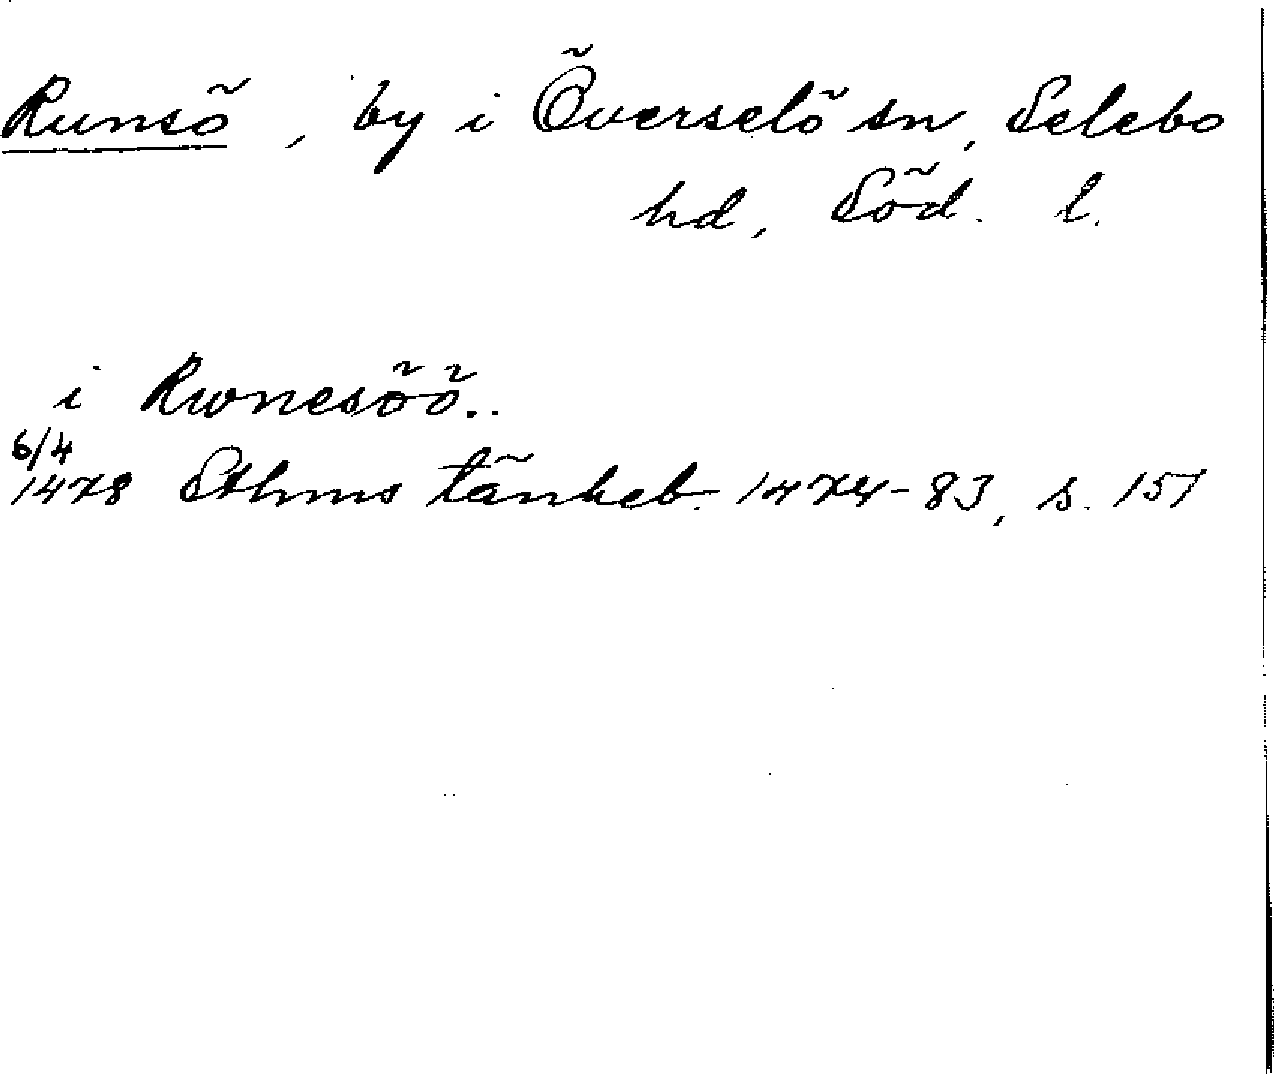 Runsö, by i Överselö sn, Selebo
hd, Söd. l.
i Rwnesöö..
6/4
1478 Sthms tänkeb. 1474-83, s. 157